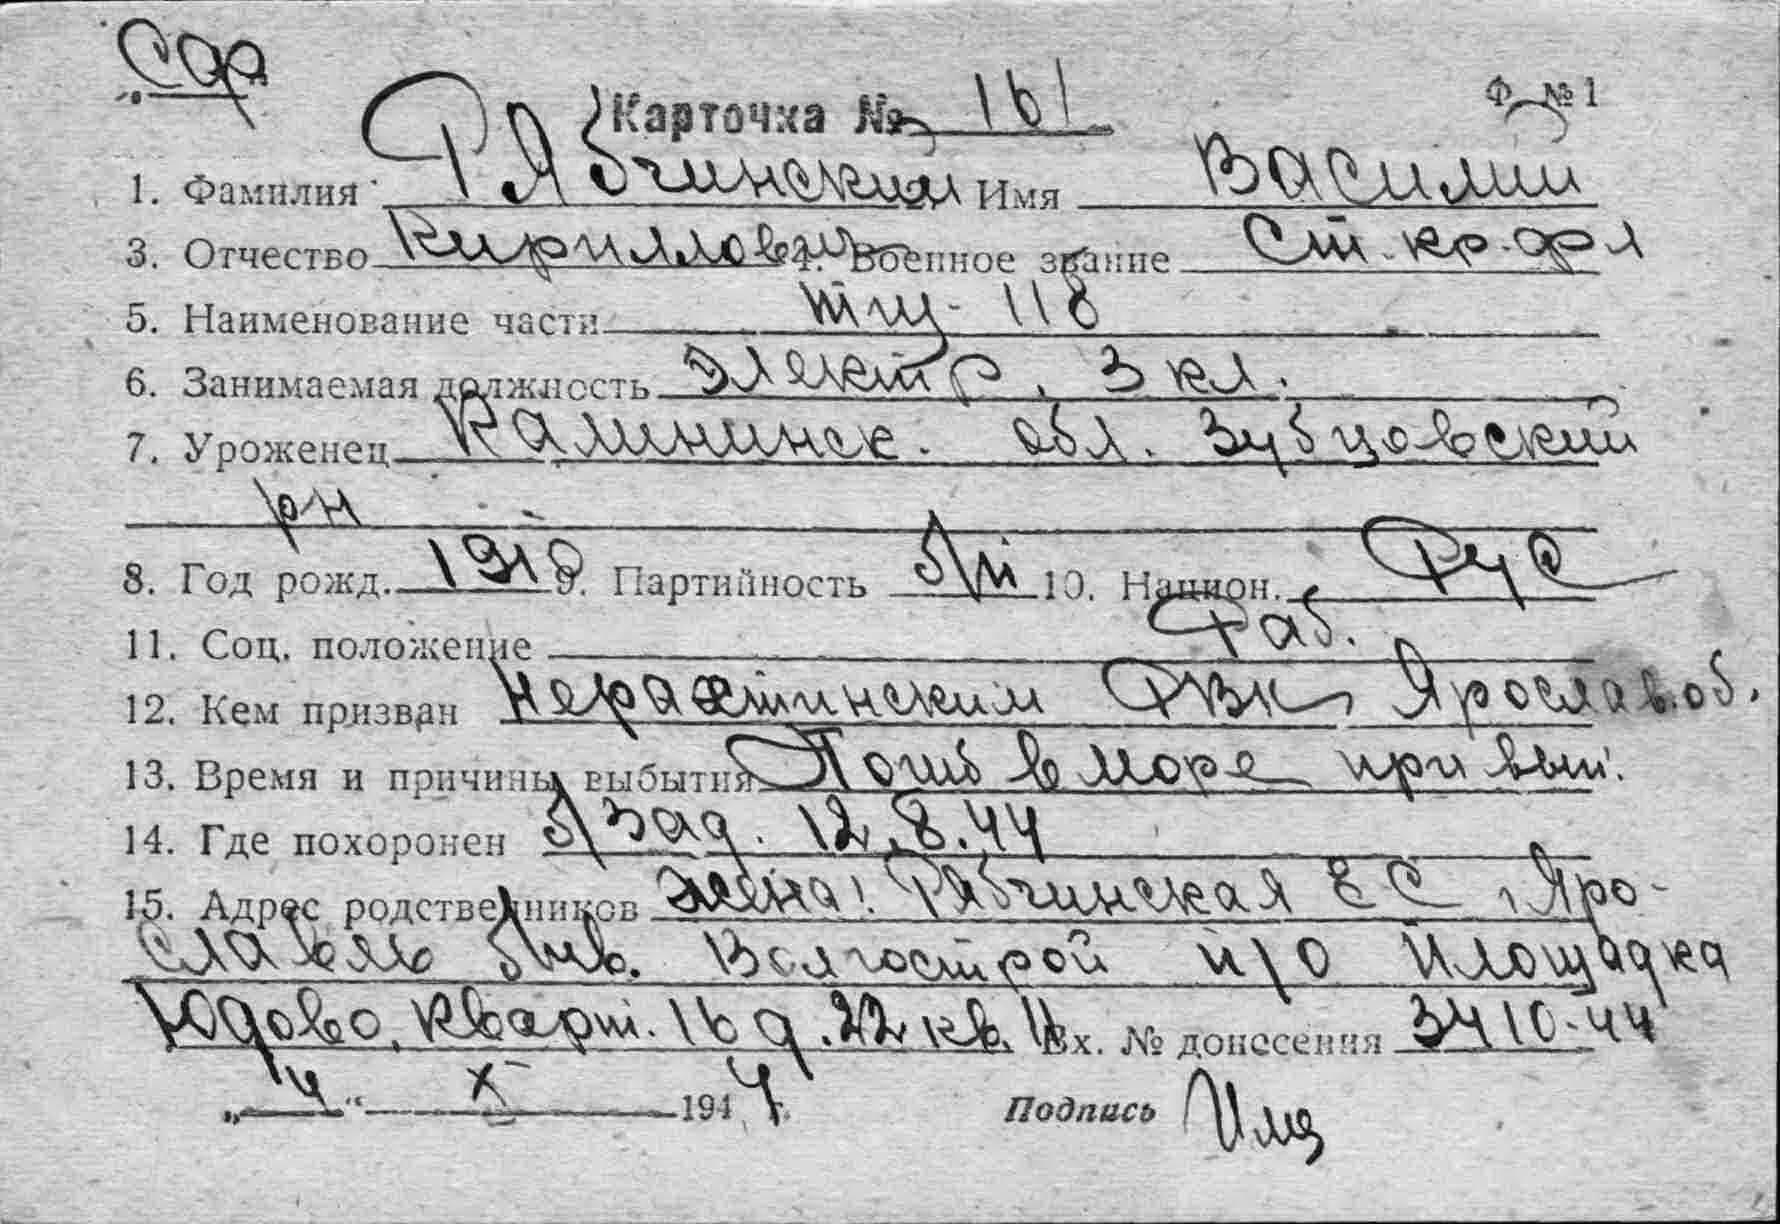 Сф
Карточка № 161 Ф №1
1. Фамилия Рябчинский 2. Имя Василий
3. Отчество Кириллович 4. Военное звание Ст. кр-фл
5. Наименование части тщ-118
6. Занимаемая должность электр. 3 кл.
7. Уроженец Калининск. обл. Зубцовский
рн
8. Год рожд. 1918 9. Партийность б/п 10. Национ. Рус
11. Соц. положение Раб.
12. Кем призван Нерехтинским РВК, Ярослав. об.
13. Время и причины выбытия Погиб в море при вып.
14. Где похоронен б/зад. 12.8.44
15. Адрес родственников жена: Рябчинская Е С г Яро-
славль Волгострой п/о Площадка
Юдово, кварт. 16 д. 22 кв. 11 Вх. № донесения 3410-44
„4“ X 1944 г. Подпись